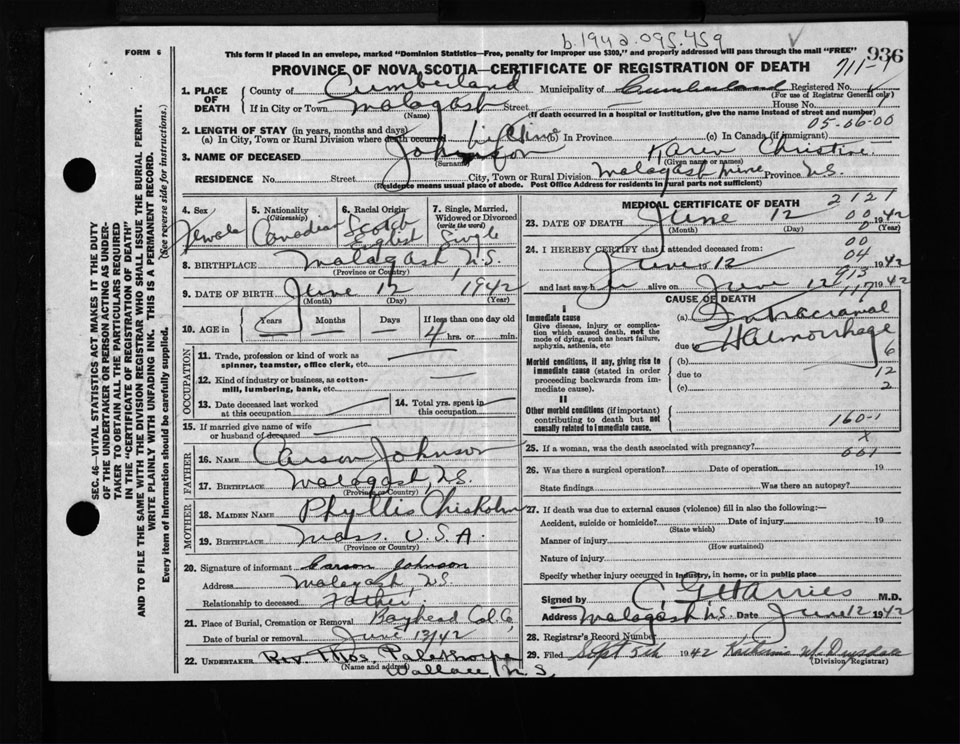 b.1942.095.459
FORM 6
This form if placed in an envelope, marked "Dominion Statistics—Free, penalty for improper use $300," and properly addressed will pass through the mail "FREE"
936
PROVINCE OF NOVA SCOTIA—CERTIFICATE OF REGISTRATION OF DEATH
711-1
1. PLACE OF DEATH
County of Cumberland Municipality of Cumberland Registered No.
(For use of Registrar General only)
If in City or Town Malagash Street House No.
(Name) (If death occurred in a hospital or institution, give the name instead of street and number)
05-06-00
2. LENGTH OF STAY (in years, months and days)
(a) In City, Town or Rural Division where death occurred Life time (b) In Province (c) In Canada (if immigrant)
3. NAME OF DECEASED Johnson Karen Christine
(Surname) (Given name or names)
RESIDENCE No. Street City, Town or Rural Division Malagash Mine Province N.S.
(Residence means usual place of abode. Post Office Address for residents in rural parts not sufficient)
SEC. 46—VITAL STATISTICS ACT MAKES IT THE DUTY
OF THE UNDERTAKER OR PERSON ACTING AS UNDER-
TAKER TO OBTAIN ALL THE PARTICULARS REQUIRED
IN THE "CERTIFICATE OF REGISTRATION OF DEATH"
AND TO FILE THE SAME WITH THE DIVISION REGISTRAR WHO SHALL ISSUE THE BURIAL PERMIT.
WRITE PLAINLY WITH UNFADING INK. THIS IS A PERMANENT RECORD.
Every item of information should be carefully supplied. (See reverse side for instructions.)
4. Sex Female
5. Nationality (Citizenship) Canadian
6. Racial Origin Scotch English
7. Single, Married, Widowed or Divorced (write the word) Single
8. BIRTHPLACE Malagash, N.S.
(Province or Country)
9. DATE OF BIRTH June 12 1942
(Month) (Day) (Year)
10. AGE in Years Months Days If less than one day old
4 hrs. or min.
OCCUPATION
11. Trade, profession or kind of work as spinner, teamster, office clerk, etc.
12. Kind of industry or business, as cotton-mill, lumbering, bank, etc.
13. Date deceased last worked at this occupation
14. Total yrs. spent in this occupation
15. If married give name of wife or husband of deceased
FATHER
16. NAME Carson Johnson
17. BIRTHPLACE Malagash, N.S.
(Province or Country)
MOTHER
18. MAIDEN NAME Phyllis Chisholm
19. BIRTHPLACE Mass. U.S.A.
(Province or Country)
20. Signature of informant Carson Johnson
Address Malagash, N.S.
Relationship to deceased Father
21. Place of Burial, Cremation or Removal Bayhead Col. Co,
Date of burial or removal June 13/42
22. UNDERTAKER Rev. Thos. Palethorpe
(Name and address)
Wallace, N.S.
MEDICAL CERTIFICATE OF DEATH
2121
23. DATE OF DEATH June 12 1942
(Month) (Day) (Year)
00
24. I HEREBY CERTIFY that I attended deceased from:
00
04
June 12 1942
913
and last saw h alive on June 12 1942
117
CAUSE OF DEATH
I
Immediate cause
Give disease, injury or complication which caused death, not the mode of dying, such as heart failure, asphyxia, asthenia, etc
(a) Intracranial
due to Haemorrhage
6
Morbid conditions, if any, giving rise to immediate cause (stated in order proceeding backwards from immediate cause).
(b)
due to 12
(c) 2
II
Other morbid conditions (if important) contributing to death but not causally related to immediate cause.
160-1
x
25. If a woman, was the death associated with pregnancy? 001
26. Was there a surgical operation? Date of operation 19
State findings Was there an autopsy?
27. If death was due to external causes (violence) fill in also the following:—
Accident, suicide or homicide? Date of injury 19
(State which)
Manner of injury
(How sustained)
Nature of injury
Specify whether injury occurred in industry, in home, or in public place
Signed by C. G. Harries M.D.
Address Malagash, N.S. Date June 12 1942
28. Registrar's Record Number
29. Filed Sept 5th 1942
(Division Registrar)